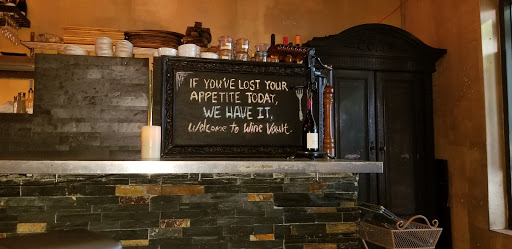 IF YOU'VE LOST YOUR
APPETITE TODAY,
WE HAVE IT.
Welcome to Wine Vault.